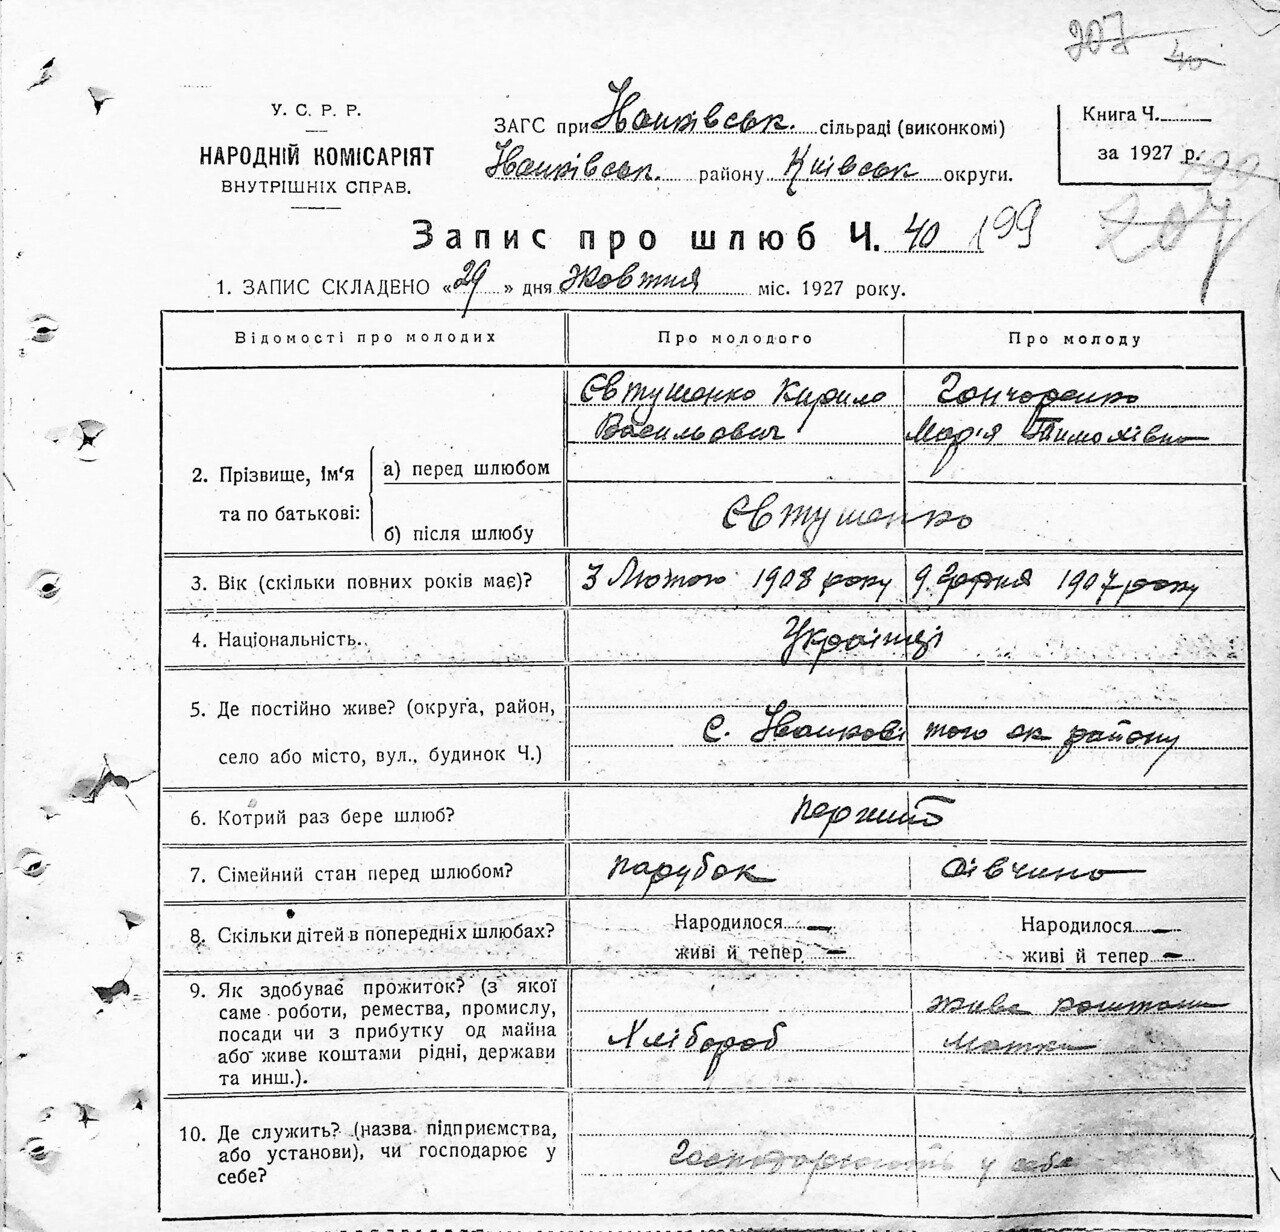 207 40
У. С. Р. Р.
НАРОДНІЙ КОМІСАРІЯТ
ВНУТРІШНІХ СПРАВ.
ЗАГС при Іванківськ. сільраді (виконкомі)
Іванківськ. району Київськ округи.
Книга Ч.
за 1927 р.
199
207
Запис про шлюб Ч. 40 199
1. ЗАПИС СКЛАДЕНО «29» дня Жовтня міс. 1927 року.
Відомості про молодих Про молодого Про молоду
Євтушенко Кирило Гончаренко
Васильович Марія Тимохівна
2. Прізвище, ім'я та по батькові: а) перед шлюбом
б) після шлюбу Євтушенко
3. Вік (скільки повних років має)? 3 Лютого 1908 року 9 1907 року
4. Національність.. Українці
5. Де постійно живе? (округа, район,
село або місто, вул., будинок Ч.) С. Іванкові того ж району
6. Котрий раз бере шлюб? перший
7. Сімейний стан перед шлюбом? парубок дівчина
8. Скільки дітей в попередніх шлюбах? Народилося — Народилося —
живі й тепер — живі й тепер —
9. Як здобуває прожиток? (з якої
саме роботи, ремества, промислу, живе коштами
посади чи з прибутку од майна
або живе коштами рідні, держави Хлібороб матки
та инш.).
10. Де служить? (назва підприємства,
або установи), чи господарює у Господарюють у себе
себе?